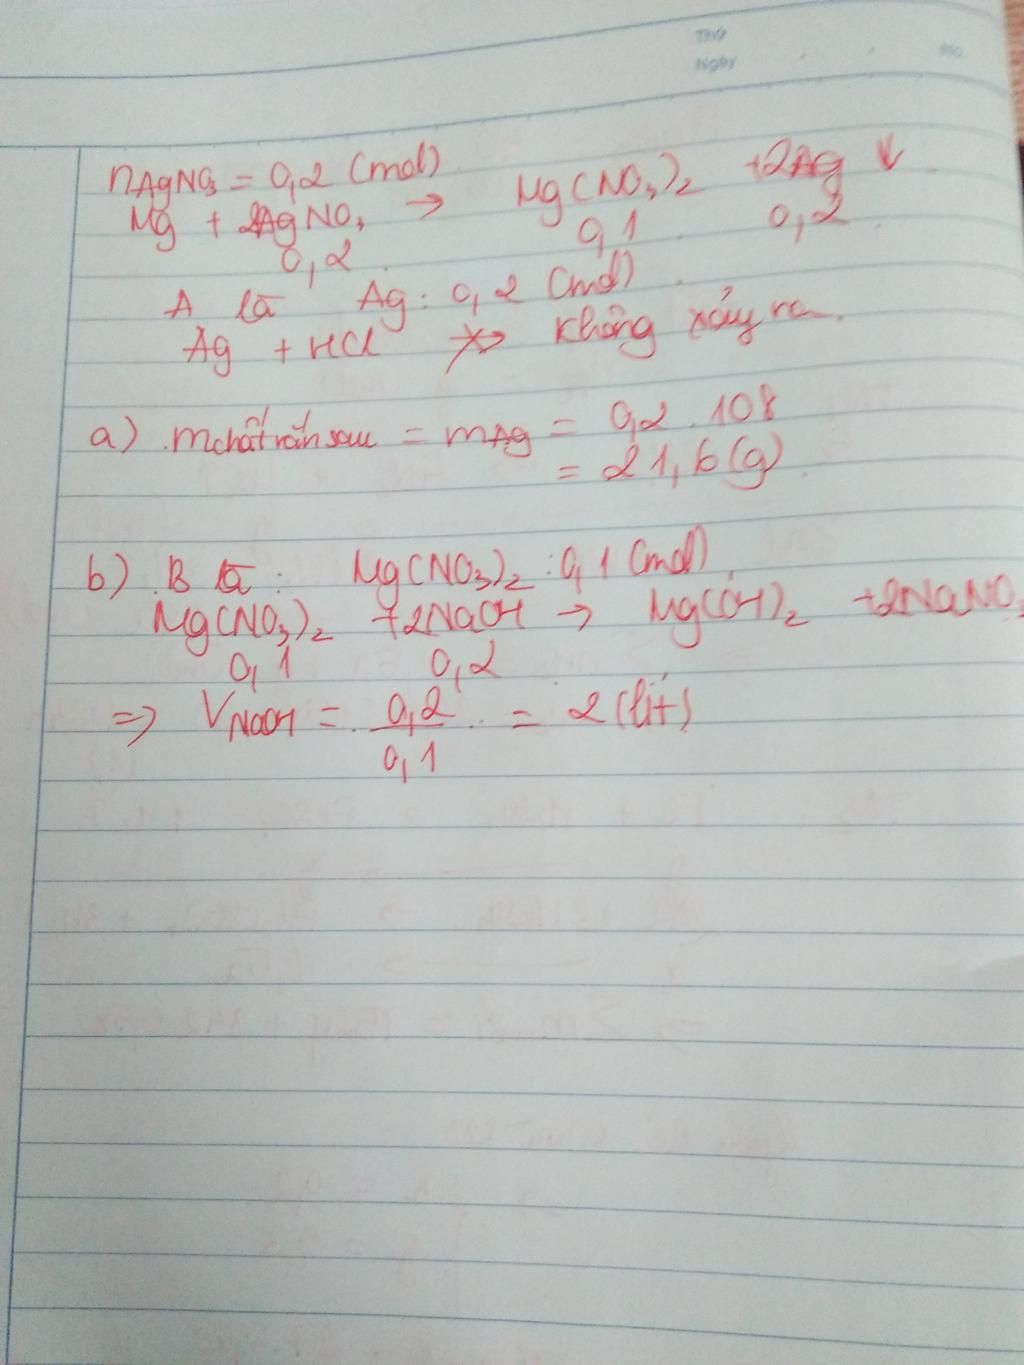 Thứ
Ngày
No.
nAgNO3 = 0,2 (mol)
Mg + 2AgNO3 → Mg(NO3)2 + 2Ag ↓
0,2 0,1 0,2
A là Ag : 0,2 (mol)
Ag + HCl ↛ không xảy ra.
a) mchất rắn sau = mAg = 0,2 . 108
= 21,6 (g)
b) B là : Mg(NO3)2 : 0,1 (mol)
Mg(NO3)2 + 2NaOH → Mg(OH)2 + 2NaNO3
0,1 0,2
=> VNaOH = 0,2 / 0,1 = 2 (lít)